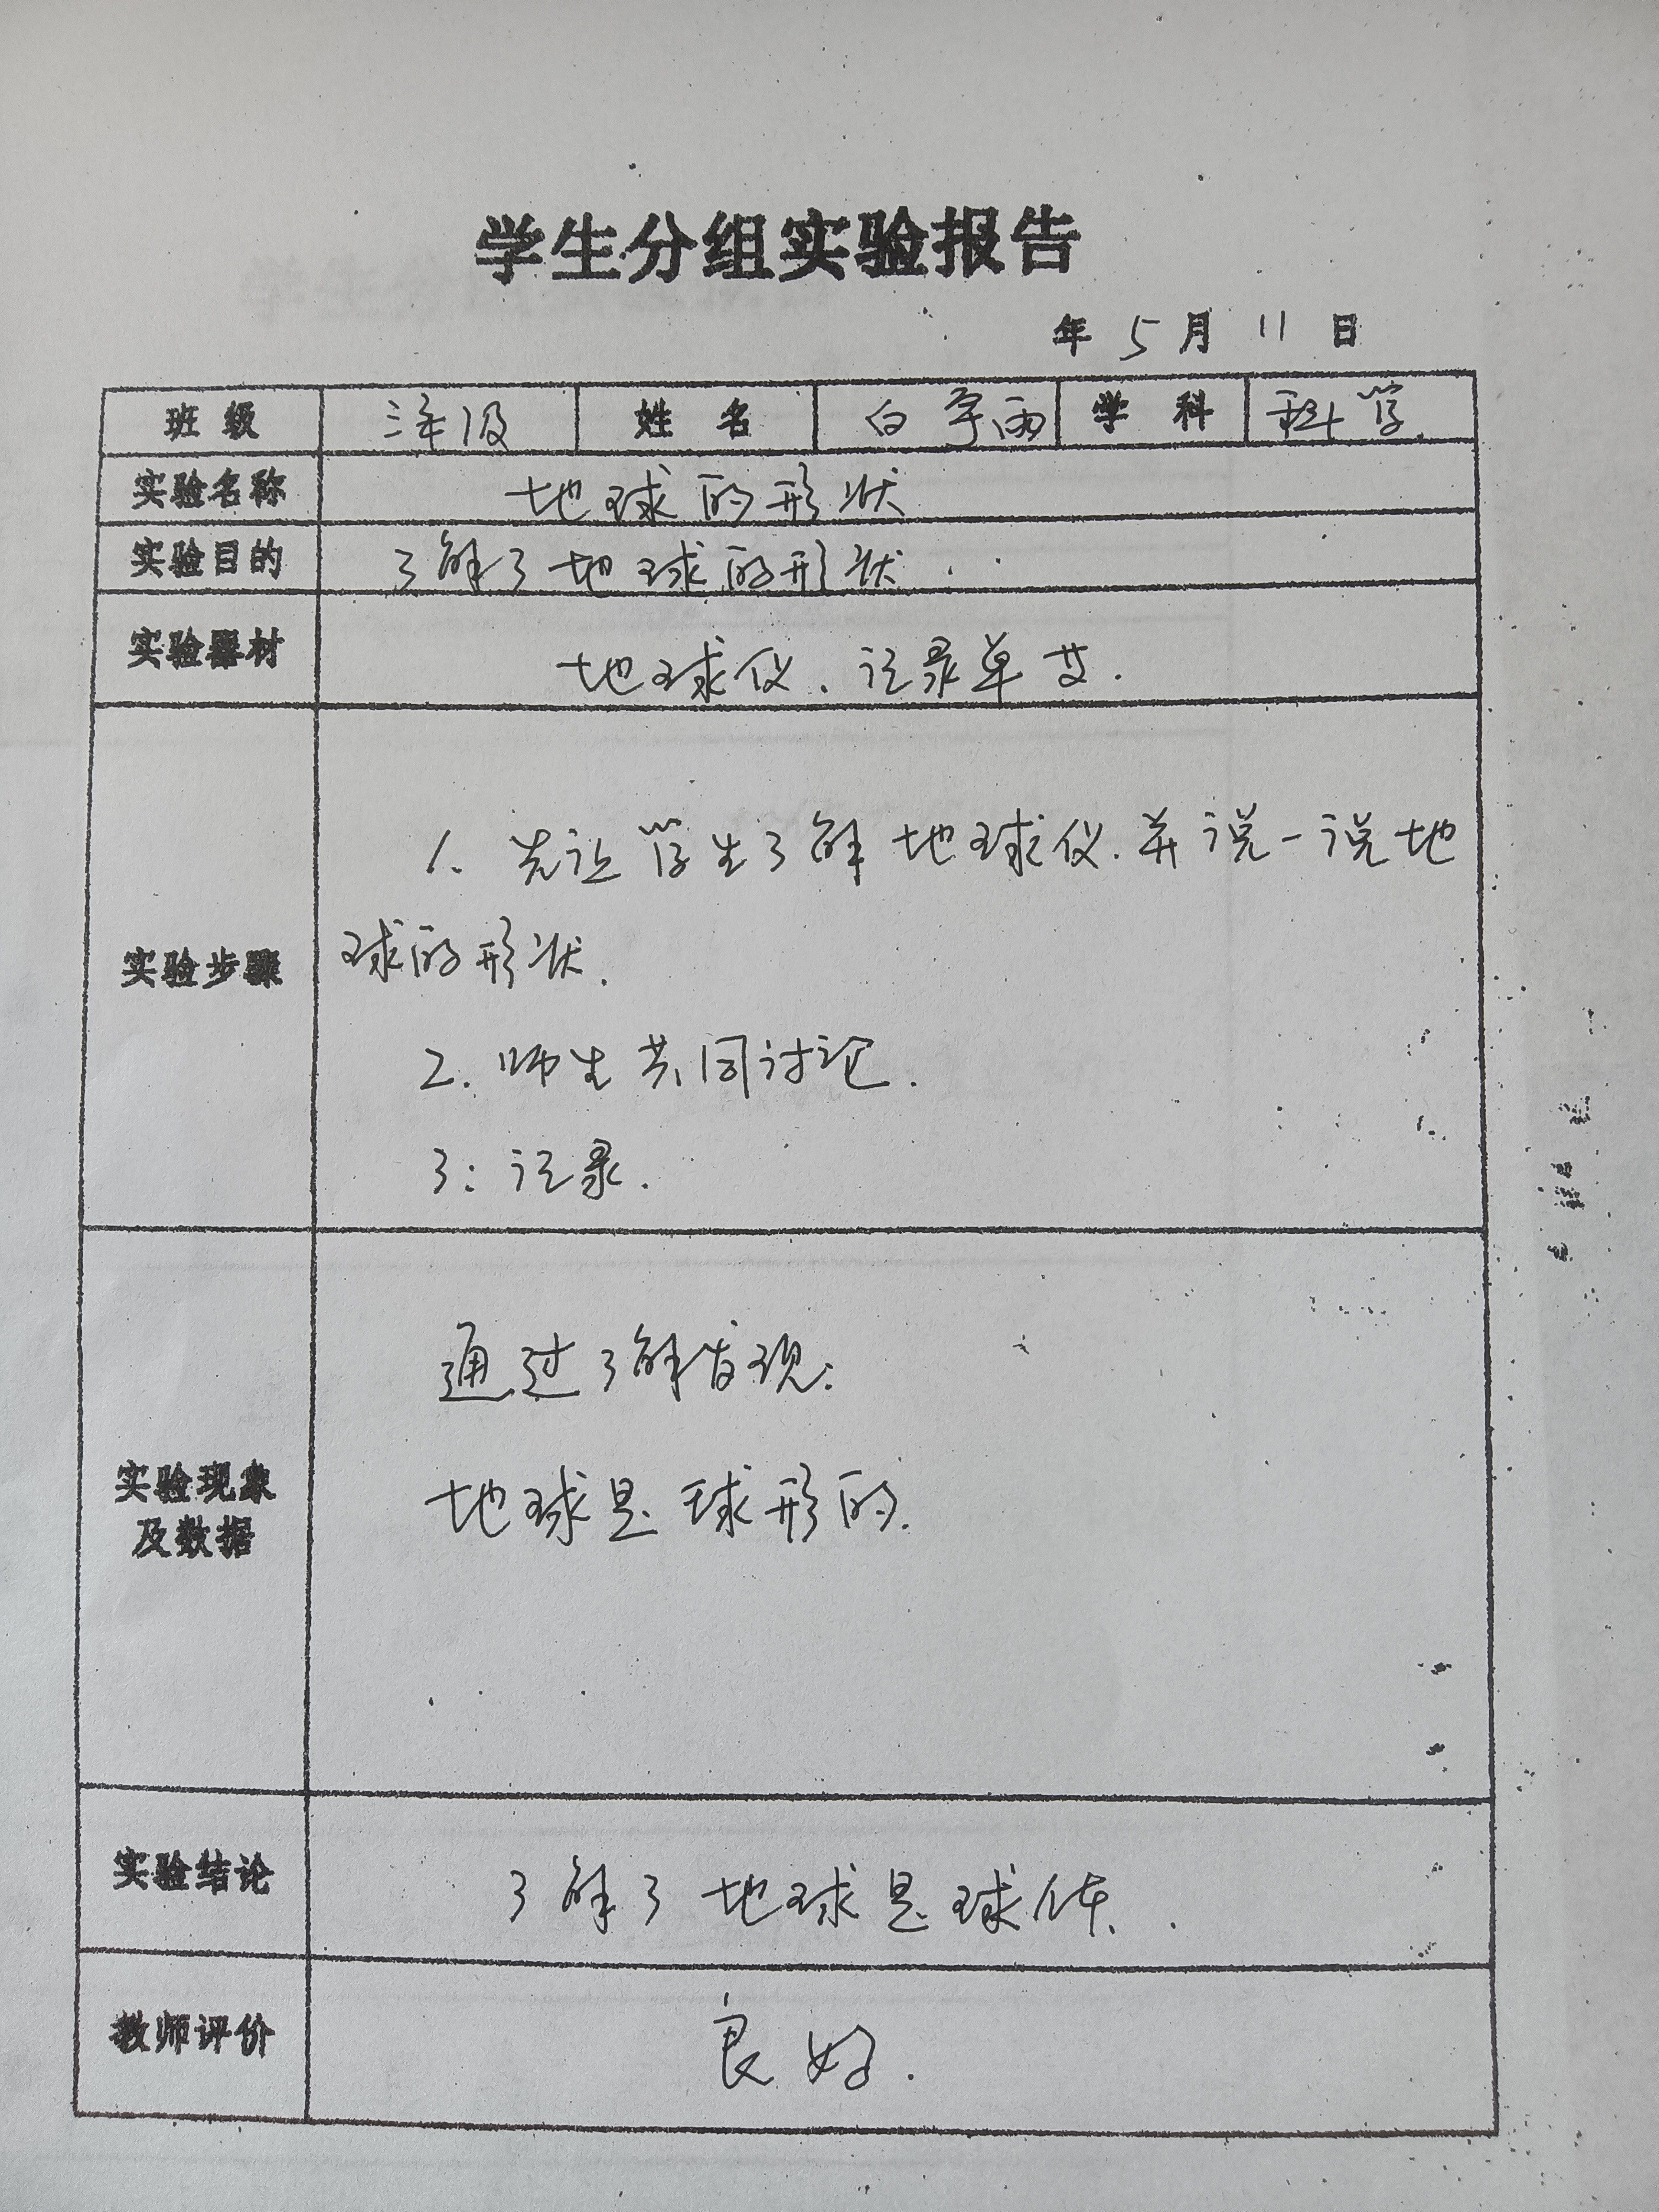 学生分组实验报告
年 5 月 11 日
班 级 三年级 姓 名 白宇雨 学 科 科学.
实验名称 地球的形状
实验目的 了解了地球的形状.
实验器材 地球仪、记录单
实验步骤
1. 先让学生了解地球仪.并说一说地
球的形状.
2. 师生共同讨论.
3: 记录.
实验现象
及数据
通过了解发现:
地球是球形的.
实验结论 了解了地球是球体.
教师评价 良好.